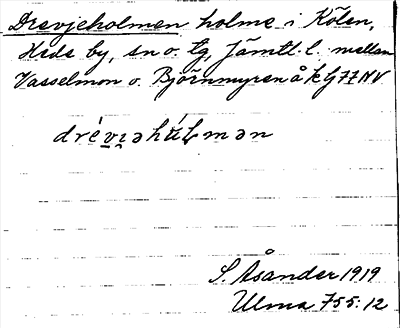 Drevjeholmen holme i Kölen,
Heds by, sn o. tg, Jämtl. l. mellan
Vasselmon o. Björnmyren å k bl 77 NV
drévi̯əhúʟmən
S. Åsander 1919
Ulma 755:12